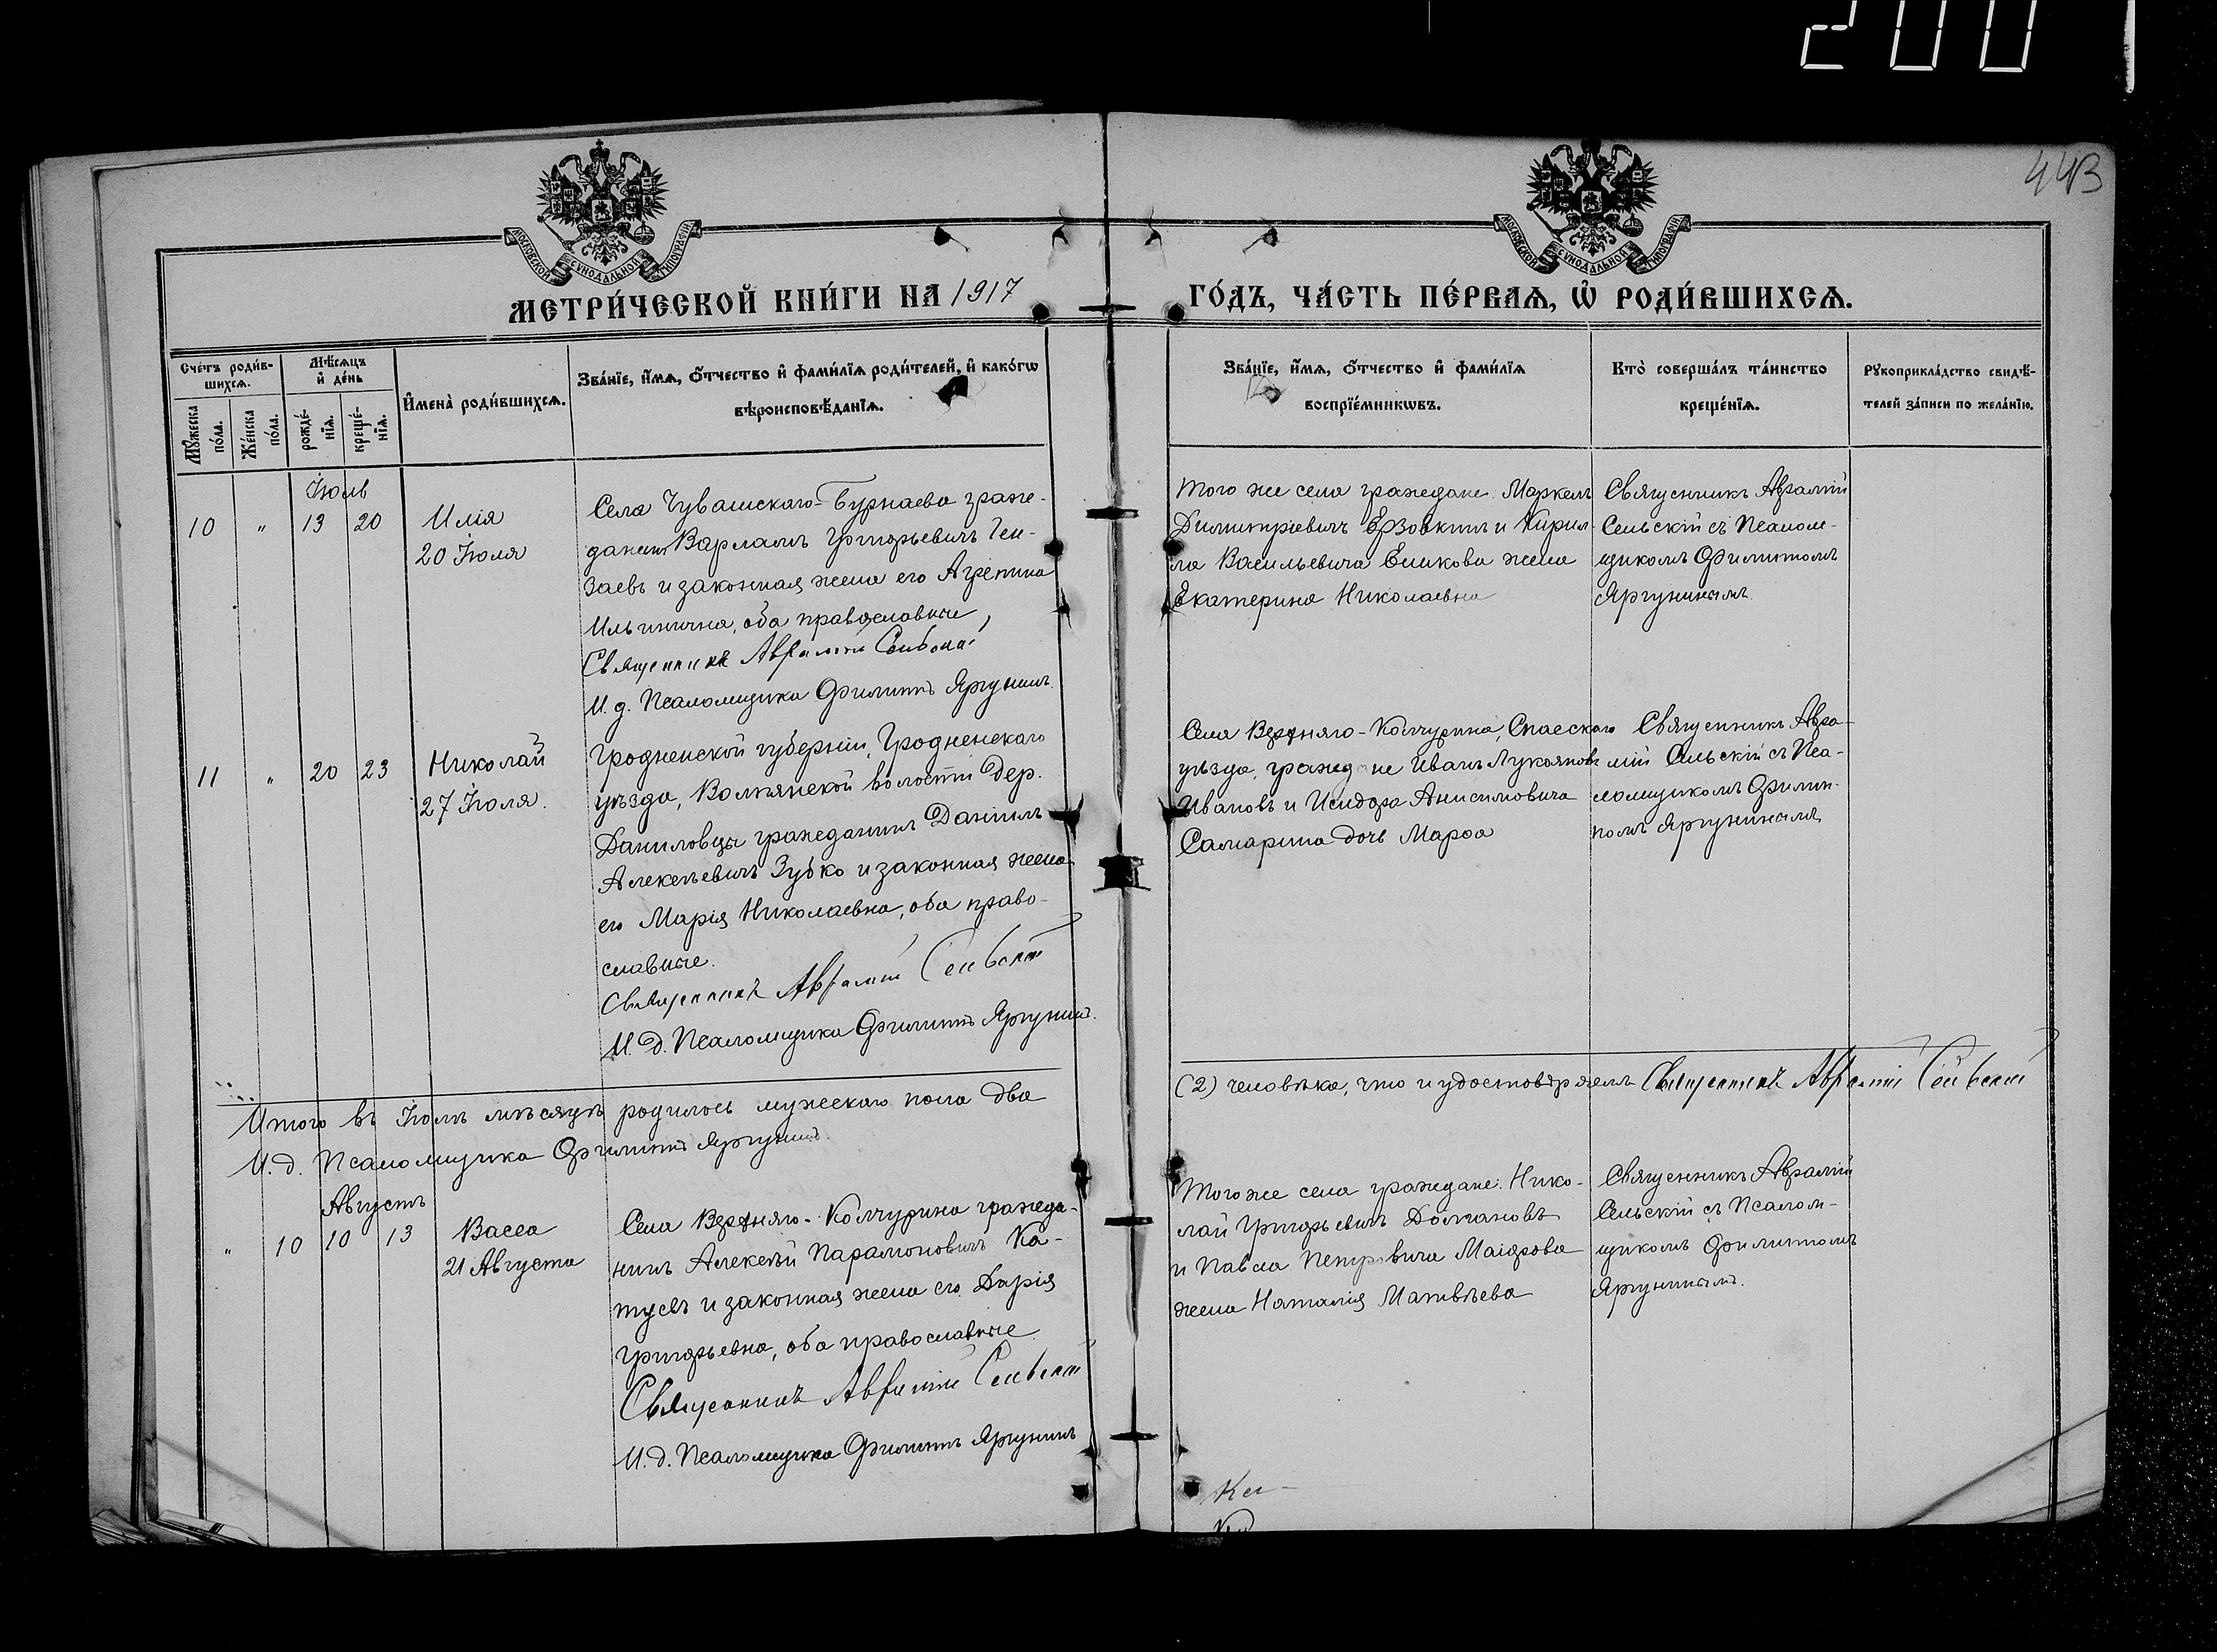 200
443
МОСКОВСКОЙ СѴНОДАЛЬНОЙ ТИПОГРАФІИ
МОСКОВСКОЙ СѴНОДАЛЬНОЙ ТИПОГРАФІИ
МЕТРИ́ЧЕСКОЙ КНИ́ГИ НА 1917
ГО́ДЪ, ЧА́СТЬ ПЕ́РВАѦ, Ѡ҆ РОДИ́ВШИХСѦ.
Сче́тъ роди́в-
шихсѧ.
Мꙋ́жеска по́ла.
Же́нска по́ла.
Мѣ́сѧцъ и҆ де́нь
рожде́-
нїѧ.
креще́-
нїѧ.
И҆мена̀ роди́вшихсѧ.
Зва́нїе, и҆́мѧ, ѻ҆́тчество и҆ фами́лїѧ роди́телей, и҆ како́гѡ
вѣроисповѣ́данїѧ.
Зва́нїе, и҆́мѧ, ѻ҆́тчество и҆ фами́лїѧ
воспрїе́мникѡвъ.
Кто̀ соверша́лъ та́инство
креще́нїѧ.
Рꙋкоприкла́дство свидѣ́-
телей за́писи по жела́нїю.
Іюль
10 " 13 20
Илія
20 Іюля
Села Чувашскаго-Бурнаева граж-
данинъ Варлаамъ Григорьевичъ Ген-
заевъ и законная жена его Агрепина
Ильинична, оба православные,
Священникъ Аврамій Сельскій
И. д. Псаломщика Филиппъ Яргунинъ.
Того же села граждане: Маркелъ
Димитріевичъ Ерзовкинъ и Кирил-
ла Васильевича Ешкова жена
Екатерина Николаевна
Священникъ Аврамій
Сельскій съ Псалом-
щикомъ Филиппомъ
Яргунинымъ.
11 " 20 23
Николай
27 Іюля.
Гродненской губерніи, Гродненскаго
уѣзда, Волпянской волости дер.
Даниловцы гражданинъ Даніилъ
Алексѣевичъ Зубко и законная жена
его Марія Николаевна, оба право-
славные.
Священникъ Аврамій Сельскій
И. д. Псаломщика Филиппъ Яргунинъ.
Села Верхняго-Колчурина, Спасскаго
уѣзда, граждане Иванъ Лукояновъ
Ивановъ и Исидора Анисимовича
Самарина дочь Марѳа
Священникъ Авра-
мій Сельскій съ Пса-
ломщикомъ Филип-
помъ Яргунинымъ
Итого въ Іюлѣ мѣсяцѣ родилось мужескаго пола два
(2) человѣка, что и удостовѣряемъ Священникъ Аврамій Сельскій
И. д. Псаломщика Филиппъ Яргунинъ.
Августъ
" 10 10 13
Васса
21 Августа
Села Верхняго-Колчурина гражда-
нинъ Алексѣй Парамоновичъ Ка-
туевъ и законная жена его Дарія
Григорьевна, оба православные
Священникъ Аврамій Сельскій
И. д. Псаломщика Филиппъ Яргунинъ
Того же села граждане: Нико-
лай Григорьевичъ Долгановъ
и Павла Петровича Маіорова
жена Наталія Матвѣева
Священникъ Аврамій
Сельскій съ Псалом-
щикомъ Филиппомъ
Яргунинымъ.